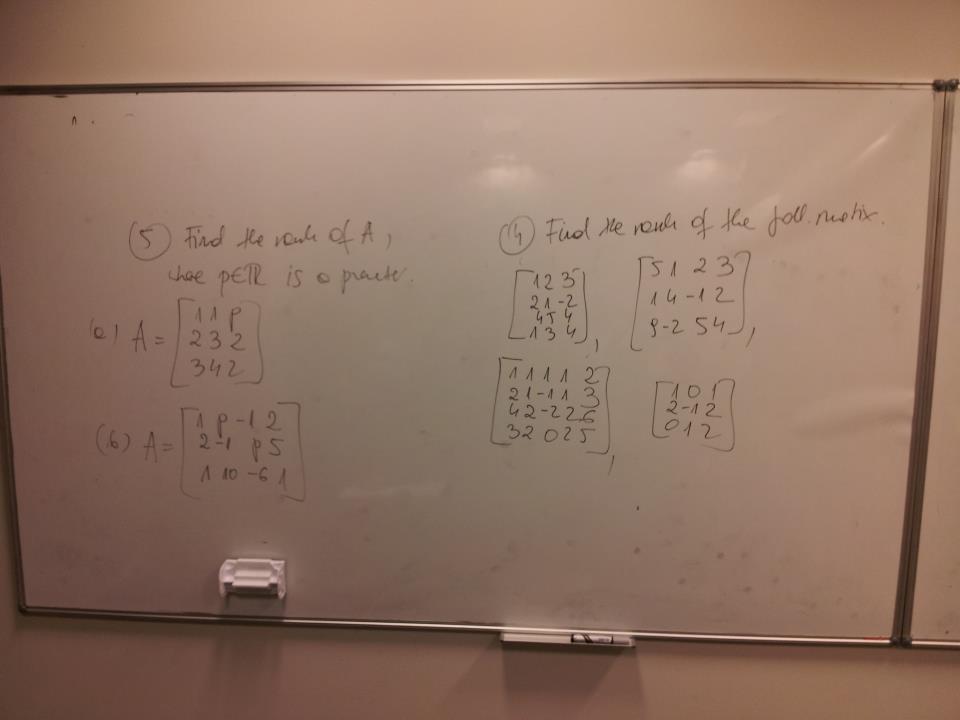 (5) Find the rank of A,
where p∈ℝ is a
(a) A = [1 1 p
2 3 2
3 4 2]
(b) A = [1 p -1 2
2 -1 p 5
1 10 -6 1]
(4) Find the rank of the foll. matrix.
[1 2 3
2 1 -2
4 5 4
1 3 4],
[5 1 2 3
1 4 -1 2
9 -2 5 4],
[1 1 1 1 2
2 1 -1 1 3
4 2 -2 2 6
3 2 0 2 5],
[1 0 1
2 -1 2
0 1 2]